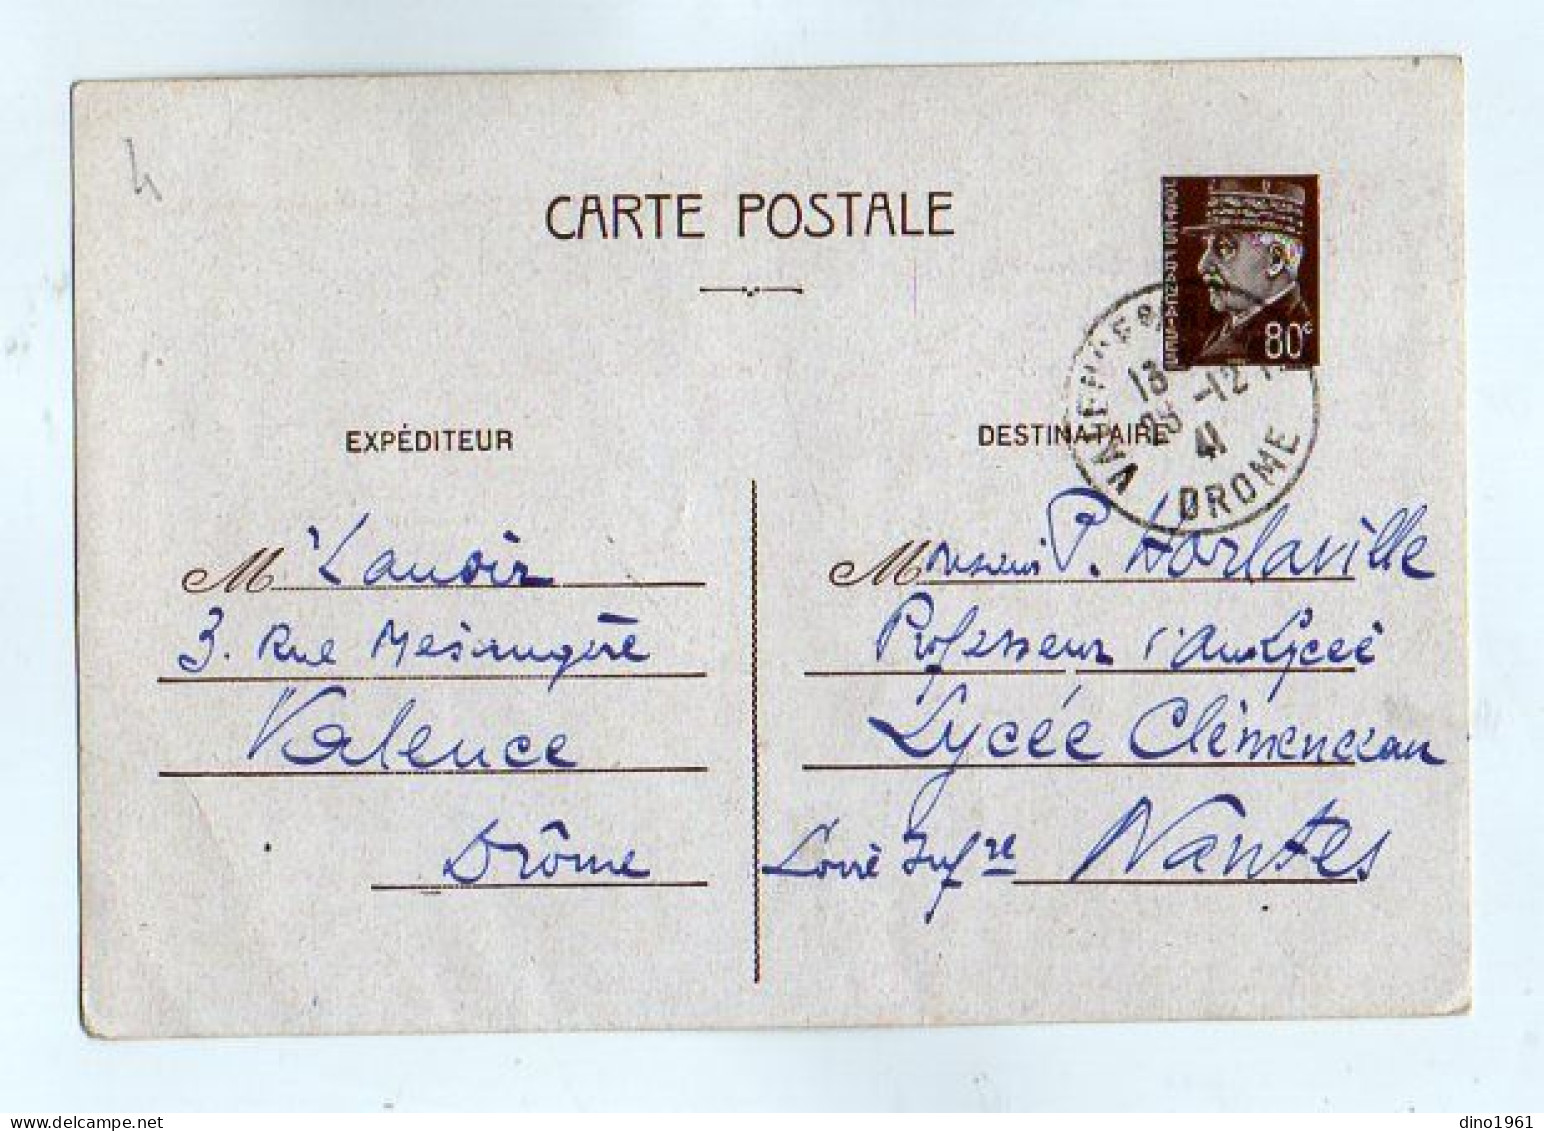 4
CARTE POSTALE
80c
VALENCE
18
28 -12
41
DROME
EXPÉDITEUR
DESTINATAIRE
M Lanoir
3. Rue Mésangère
Valence
Drôme
Monsieur P. Horlaville
Professeur Lycée
Lycée Clémenceau
Loire Infre Nantes
dino1961